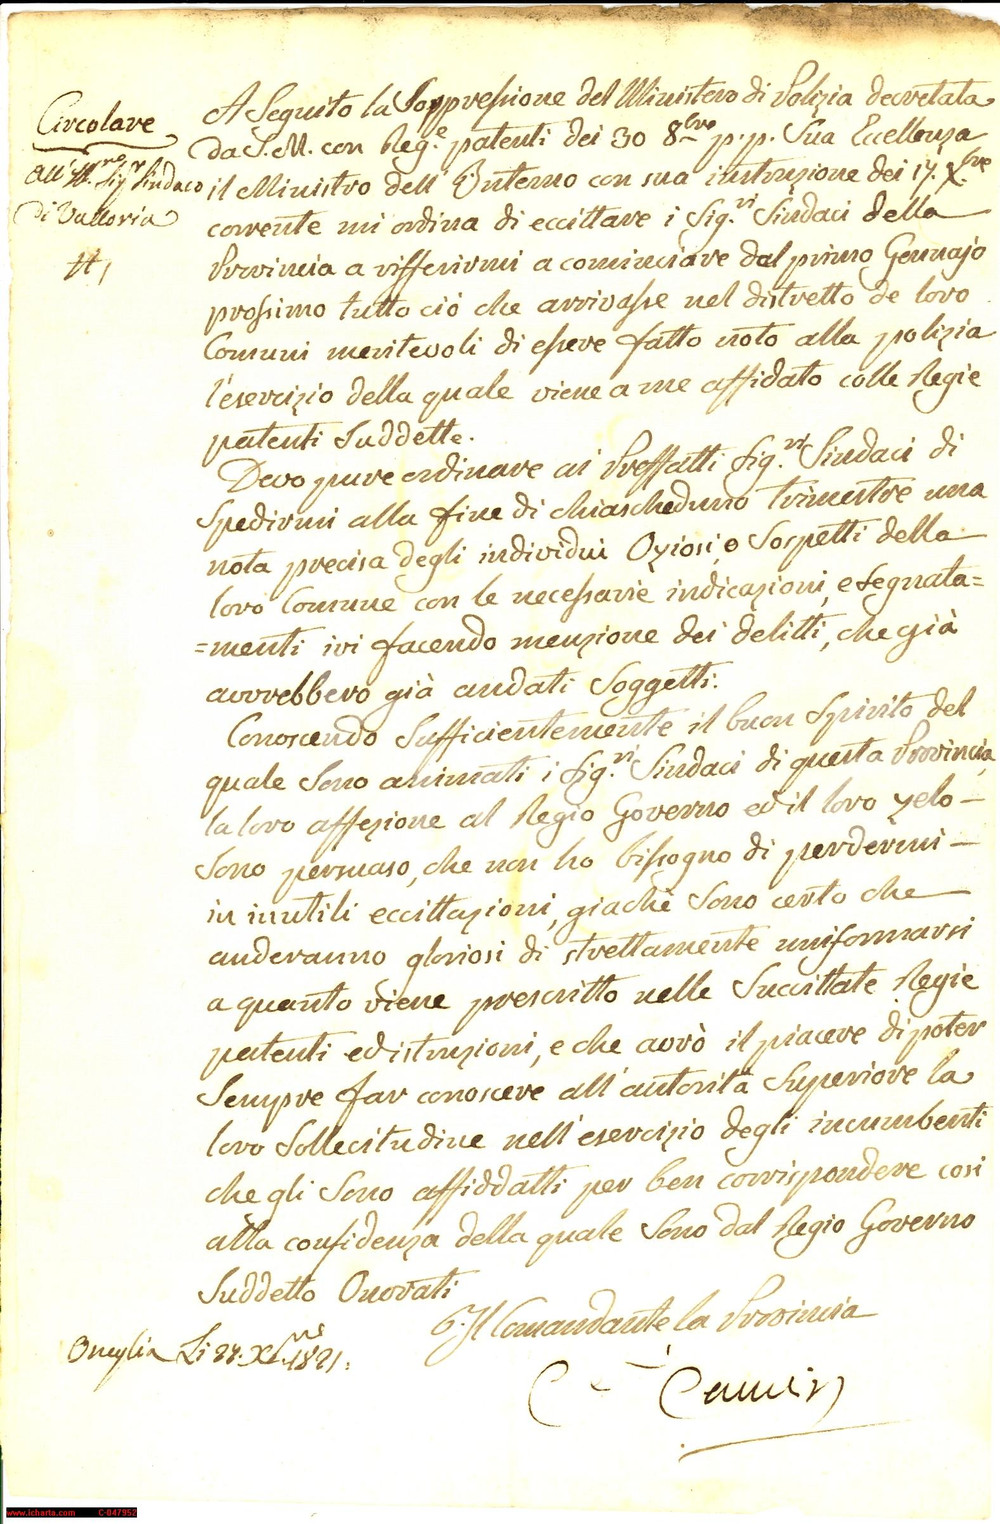 Circolare
All'Ill.mo Sig.r Sindaco
di Valloria
A Seguito la Soppressione del Ministero di Polizia decretata
da S. M. con Reg.e patenti dei 30 8bre p.p. Sua Eccellenza
il Ministro dell'Interno con sua instruzione dei 17. Xbre
corrente mi ordina di eccittare i Sig.ri Sindaci della
Provincia a rifferirmi a cominciare dal primo Gennajo
prossimo tutto ciò che arrivasse nel distretto de loro
Comuni meritevoli di essere fatto noto alla polizia
l'esercizio della quale viene a me affidato colle Regie
patenti Suddette.
Devo pure ordinare ai Proffatti Sig.ri Sindaci di
Spedirmi alla fine di chiascheduno trimestre una
nota precisa degli individui Oziosi, e Sospetti della
loro Comune con le necessarie indicazioni, e segnata=
=menti ivi facendo menzione dei delitti, che già
avvrebbero già andati Soggetti.
Conoscendo Sufficientemente il buon Spirito del
quale Sono animati i Sig.ri Sindaci di questa Provincia,
la loro affezione al Regio Governo ed il loro zelo
Sono persuaso, che non ho bissogno di perdermi
in inutili eccittazioni, giachè Sono certo che
anderanno gloriosi di strettamente uniformarsi
a quanto viene prescritto nelle Succittate Regie
patenti ed istruzioni, e che avrò il piacere di poter
Sempre far conoscere all'autorità Superiore la
loro Sollecitudine nell'esercizio degli incumbenti
che gli Sono affiddatti per ben corrispondere così
alla confidenza della quale Sono dal Regio Governo
Suddetto Onorati
Il Comandante la Provincia
Oneglia Li 1821.
www.icharta.com C-047952